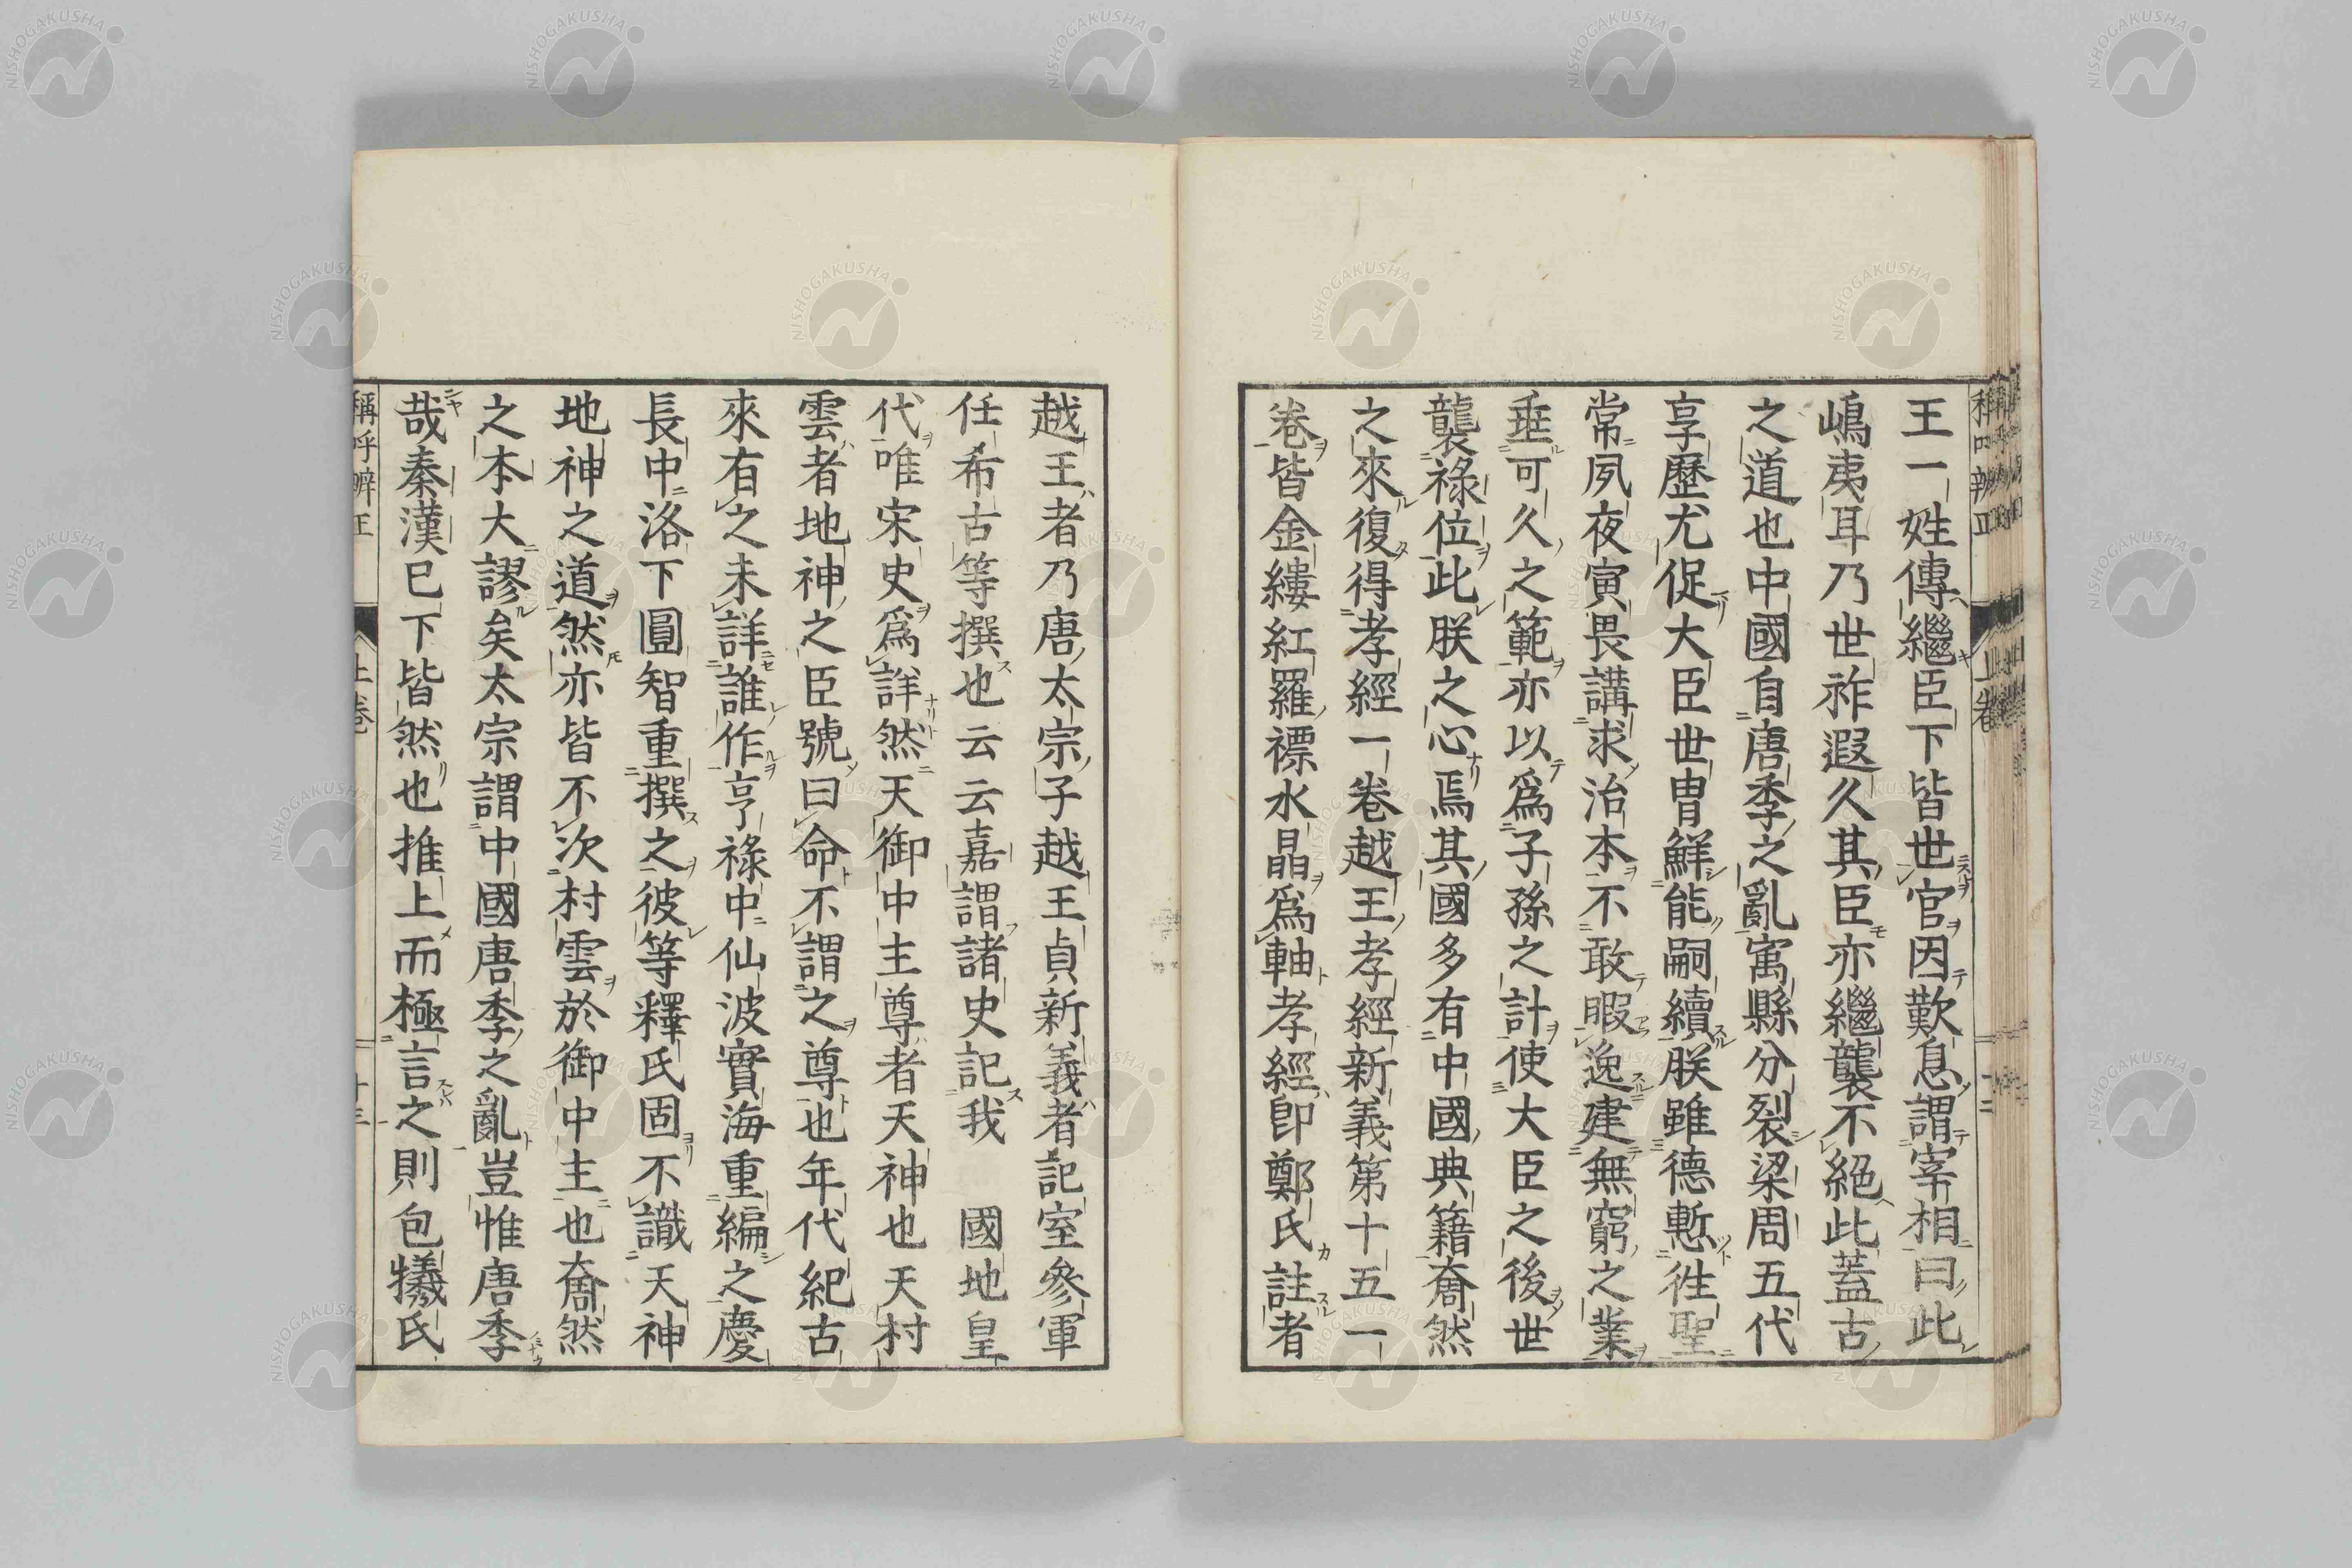 王一姓傳繼臣下皆世官因歎息謂宰相曰此
嶋夷耳乃世祚遐久其臣亦繼襲不絕此蓋古
之道也中國自唐季之亂寓縣分裂梁周五代
享歷尤促大臣世冑鮮能嗣續朕雖德慙徃聖
常夙夜寅畏講求治本不敢暇逸建無窮之業
垂可久之範亦以爲子孫之計使大臣之後世
襲祿位此朕之心焉其國多有中國典籍奝然
之來復得孝經一卷越王孝經新義第十五一
卷皆金縷紅羅褾水晶爲軸孝經卽鄭氏註者
越王者乃唐太宗子越王貞新義者記室參軍
任希古等撰也云云嘉謂諸史記我 國地皇
代唯宋史爲詳然天御中主尊者天神也天村
雲者地神之臣號曰命不謂之尊也年代紀古
來有之未詳誰作亨祿中仙波實海重編之慶
長中洛下圓智重撰之彼等釋氏固不識天神
地神之道然亦皆不次村雲於御中主也奝然
之本大謬矣太宗謂中國唐季之亂豈惟唐季
哉秦漢已下皆然也推上而極言之則包犧氏
稱呼辨正 上卷 十三
NISHOGAKUSHA